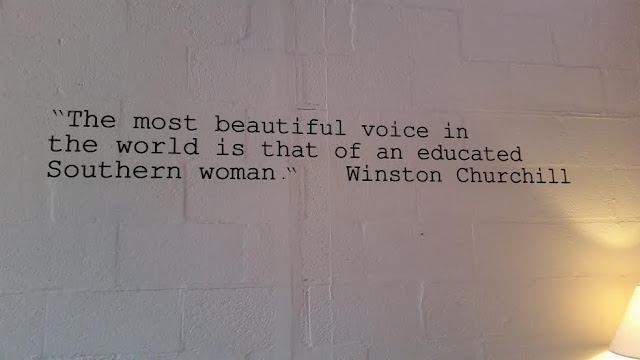 “The most beautiful voice in
the world is that of an educated
Southern woman.“ Winston Churchill